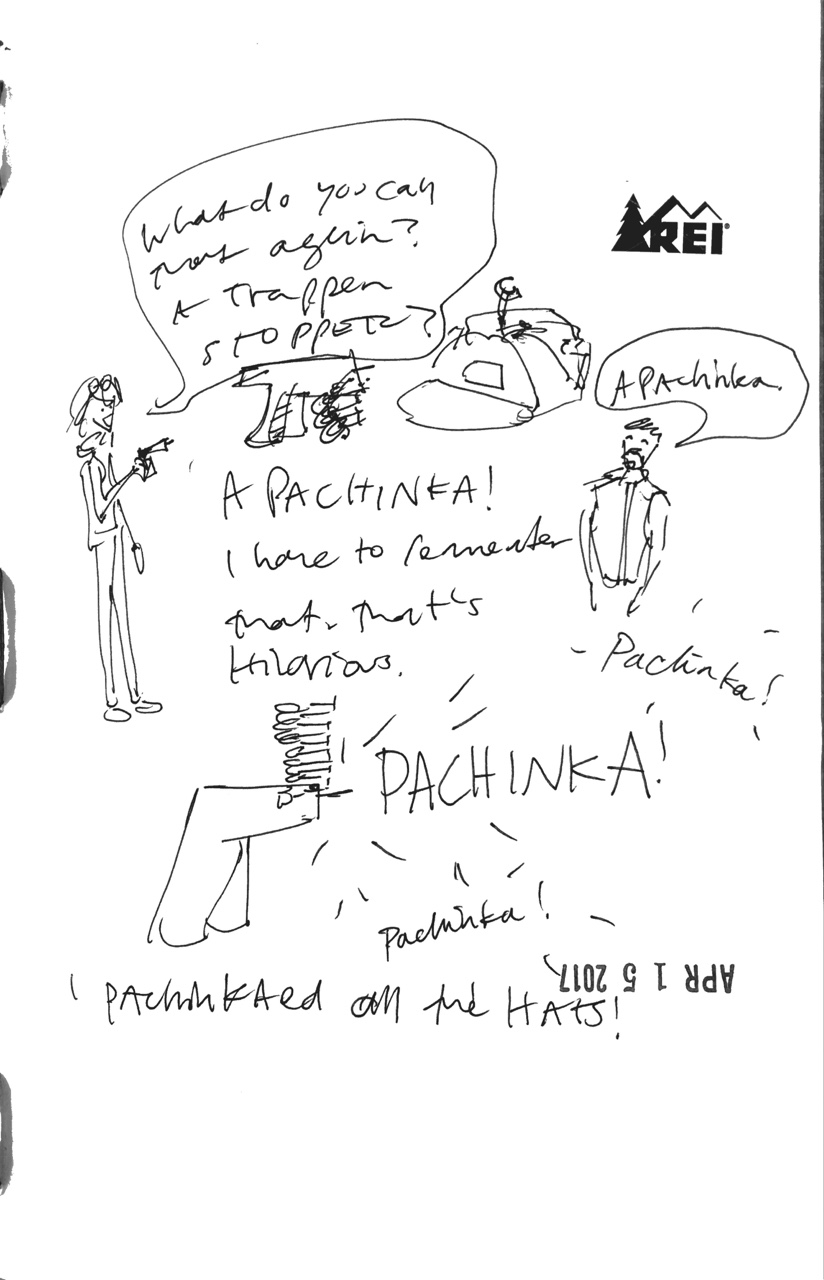 What do you call
that again?
A Trapper
STOPPER?
REI
A PAchinka.
A PACHINKA!
I have to remember
that. That's
Hilarious.
- Pachinka!
PACHINKA!
Pachinka!
APR 1 5 2017
I PAchinKAed all the HATS!